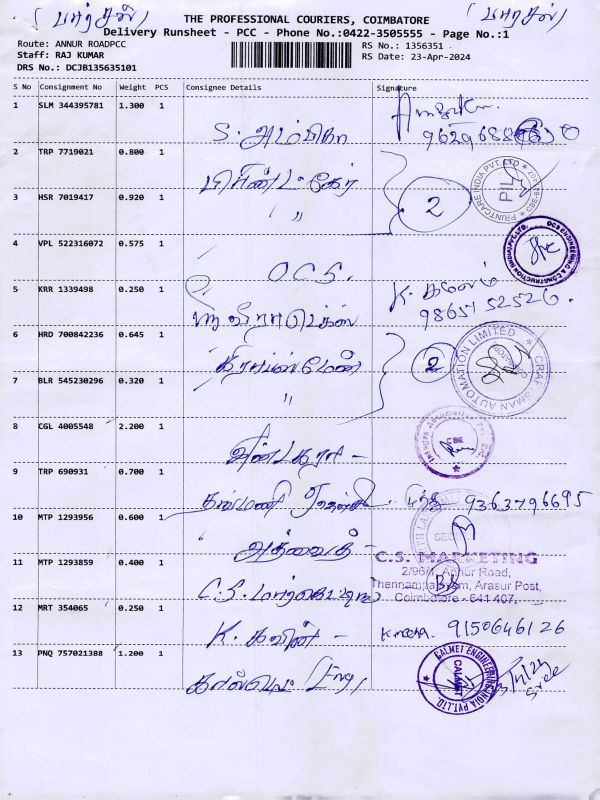 (பார்சல்)
(பார்சல்)
THE PROFESSIONAL COURIERS, COIMBATORE
Delivery Runsheet - PCC - Phone No.:0422-3505555 - Page No.:1
Route: ANNUR ROADPCC
RS No.: 1356351
Staff: RAJ KUMAR
RS Date: 23-Apr-2024
DRS No.: DCJB135635101
S No Consignment No Weight PCS Consignee Details Signature
1 SLM 344395781 1.300 1
S. அம்பிகா
2 TRP 7719021 0.800 1
பிரிண்ட் கேர்
3 HSR 7019417 0.920 1
"
2
PRINTCARE INDIA PVT. LTD
4 VPL 522316072 0.575 1
O.C.S.
OCS ENGINEERING & CONSTRUCTION (INDIA) PVT. LTD.
5 KRR 1339498 0.250 1
98657 52526
6 HRD 700842236 0.645 1
கிராப்ஸ்மேன்
7 BLR 545230296 0.320 1
"
2
CRAFTSMAN AUTOMATION LIMITED
8 CGL 4005548 2.200 1
9 TRP 690931 0.700 1
கண்மணி
9363796695
10 MTP 1293956 0.600 1
அத்வைத்
11 MTP 1293859 0.400 1
C.S. மார்கெட்டிங்
C.S. MARKETING
2/96A, Annur Road,
Thennampalayam, Arasur Post,
Coimbatore - 641 407.
12 MRT 354065 0.250 1
K. கவின் -
9150646126
13 PNQ 757021388 1.200 1
கால்மெட் Eng,
CALMET ENGINEERING INDIA PVT.LTD.
CALMET
23/4/24
Sree